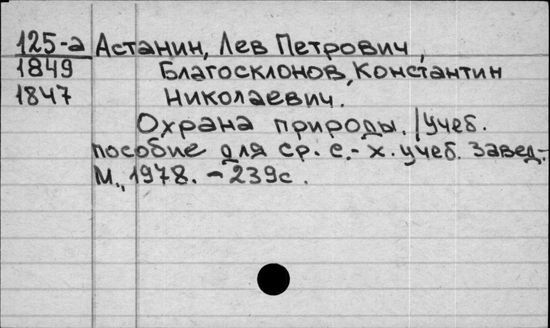 125-а Астанин, Лев Петрович,
1849 Благосклонов, Константин
1847 Николаевич.
Охрана природы. /Учеб.
пособие для ср. с.-х. учеб. завед.-
М., 1978. - 239с.